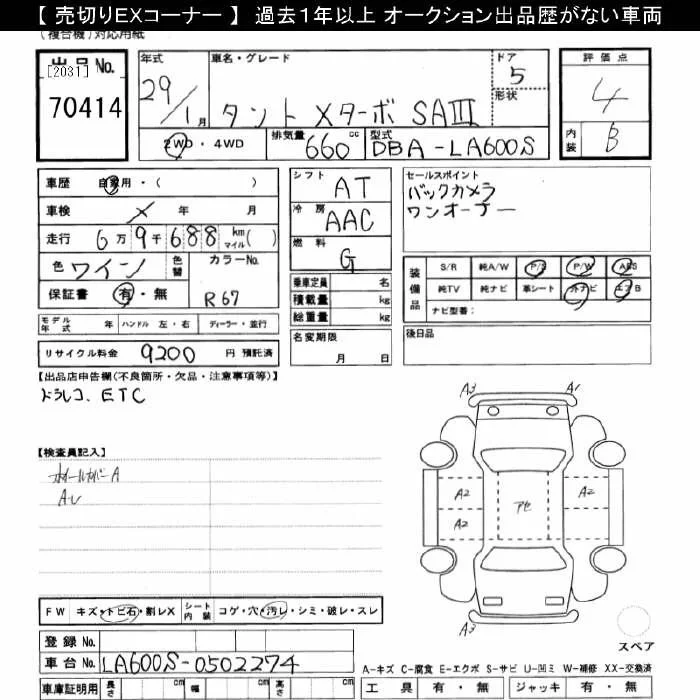 【 売切りEXコーナー 】 過去１年以上 オークション出品歴がない車両
(複合機)対応用紙
出品No.
[2031]
70414
年式
29/1月
車名・グレード
タント Xターボ SAⅢ
ドア
5
形状
評価点
4
内装
B
2WD・4WD
排気量 660 cc
型式 DBA-LA600S
車歴 自家用・( )
車検 × 年 月
走行 6万9千688 km マイル( )
色 ワイン 色替
カラーNo.
R67
保証書 有・無
シフト AT
冷房 AAC
燃料 G
乗車定員 名
積載量 kg
総重量 kg
セールスポイント
バックカメラ
ワンオーナー
装備品
S/R 純A/W P/S P/W ABS
純TV 純ナビ 革シート 外ナビ エアB
ナビ型番：
モデル年式 年 ハンドル 左・右 ディーラー・並行
リサイクル料金 9200 円 預託済
名変期限
月 日
後日品
【出品店申告欄(不良箇所・欠品・注意事項等)】
ドラレコ、ETC
【検査員記入】
ホイールカバーA
A3 A1
A2 アセ A2
A2
A3
スペア
FW キズ・トビ石・割レX
シート内装 コゲ・穴・汚レ・シミ・破レ・スレ
登録 No.
車台 No. LA600S-0502274
A-キズ C-腐食 E-エクボ S-サビ U-凹ミ W-補修 XX-交換済
車庫証明用 長さ cm 幅 cm 高さ cm
工具 有・無 ジャッキ 有・無